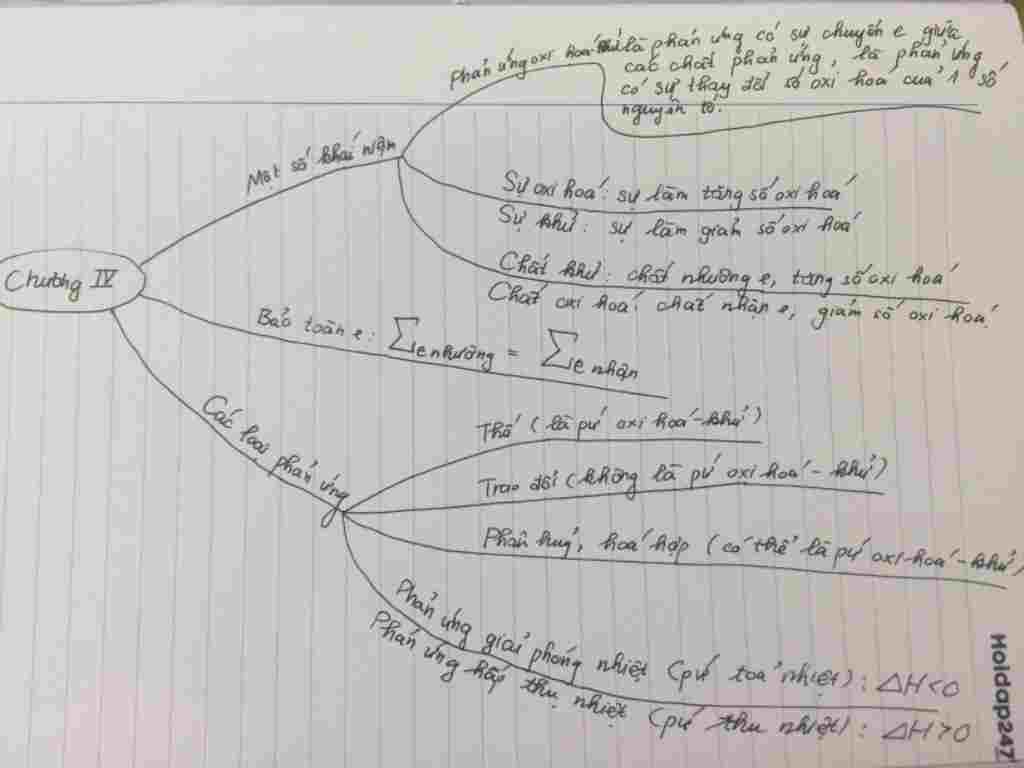 Chương IV
Một số khái niệm
Phản ứng oxi hoá là phản ứng có sự chuyển e giữa
các chất phản ứng, là phản ứng
có sự thay đổi số oxi hoá của 1 số
nguyên tố.
Sự oxi hoá: sự làm tăng số oxi hoá
Sự khử: sự làm giảm số oxi hoá
Chất khử: chất nhường e, tăng số oxi hoá
Chất oxi hoá: chất nhận e, giảm số oxi hoá.
Bảo toàn e: ∑e nhường = ∑e nhận
Các loại phản ứng
Thế (là pứ oxi hoá-khử)
Trao đổi (không là pứ oxi hoá - khử)
Phân huỷ, hoá hợp (có thể là pứ oxi-hoá-khử)
Phản ứng giải phóng nhiệt (pứ toả nhiệt): ΔH<0
Phản ứng hấp thụ nhiệt (pứ thu nhiệt): ΔH>0
Hoidap247